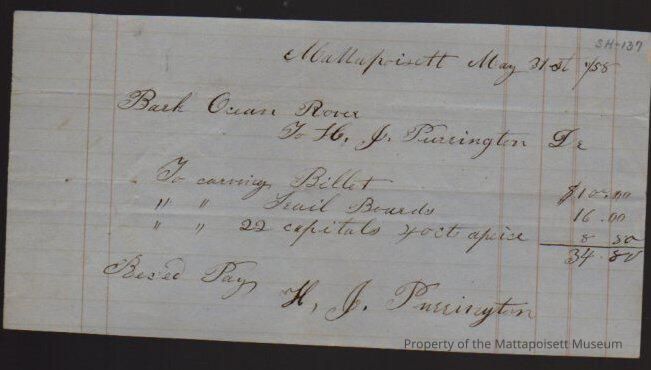 SH-137
Mattapoisett May 31st /58
Bark Ocean Rover
To H. J. Purrington Dr
To carving Billet $10.00
" " Trail Boards 16.00
" " 22 capitals 40cts apiece 8 80
34.80
Rec'ed Pay
H, J. Purrington
Property of the Mattapoisett Museum